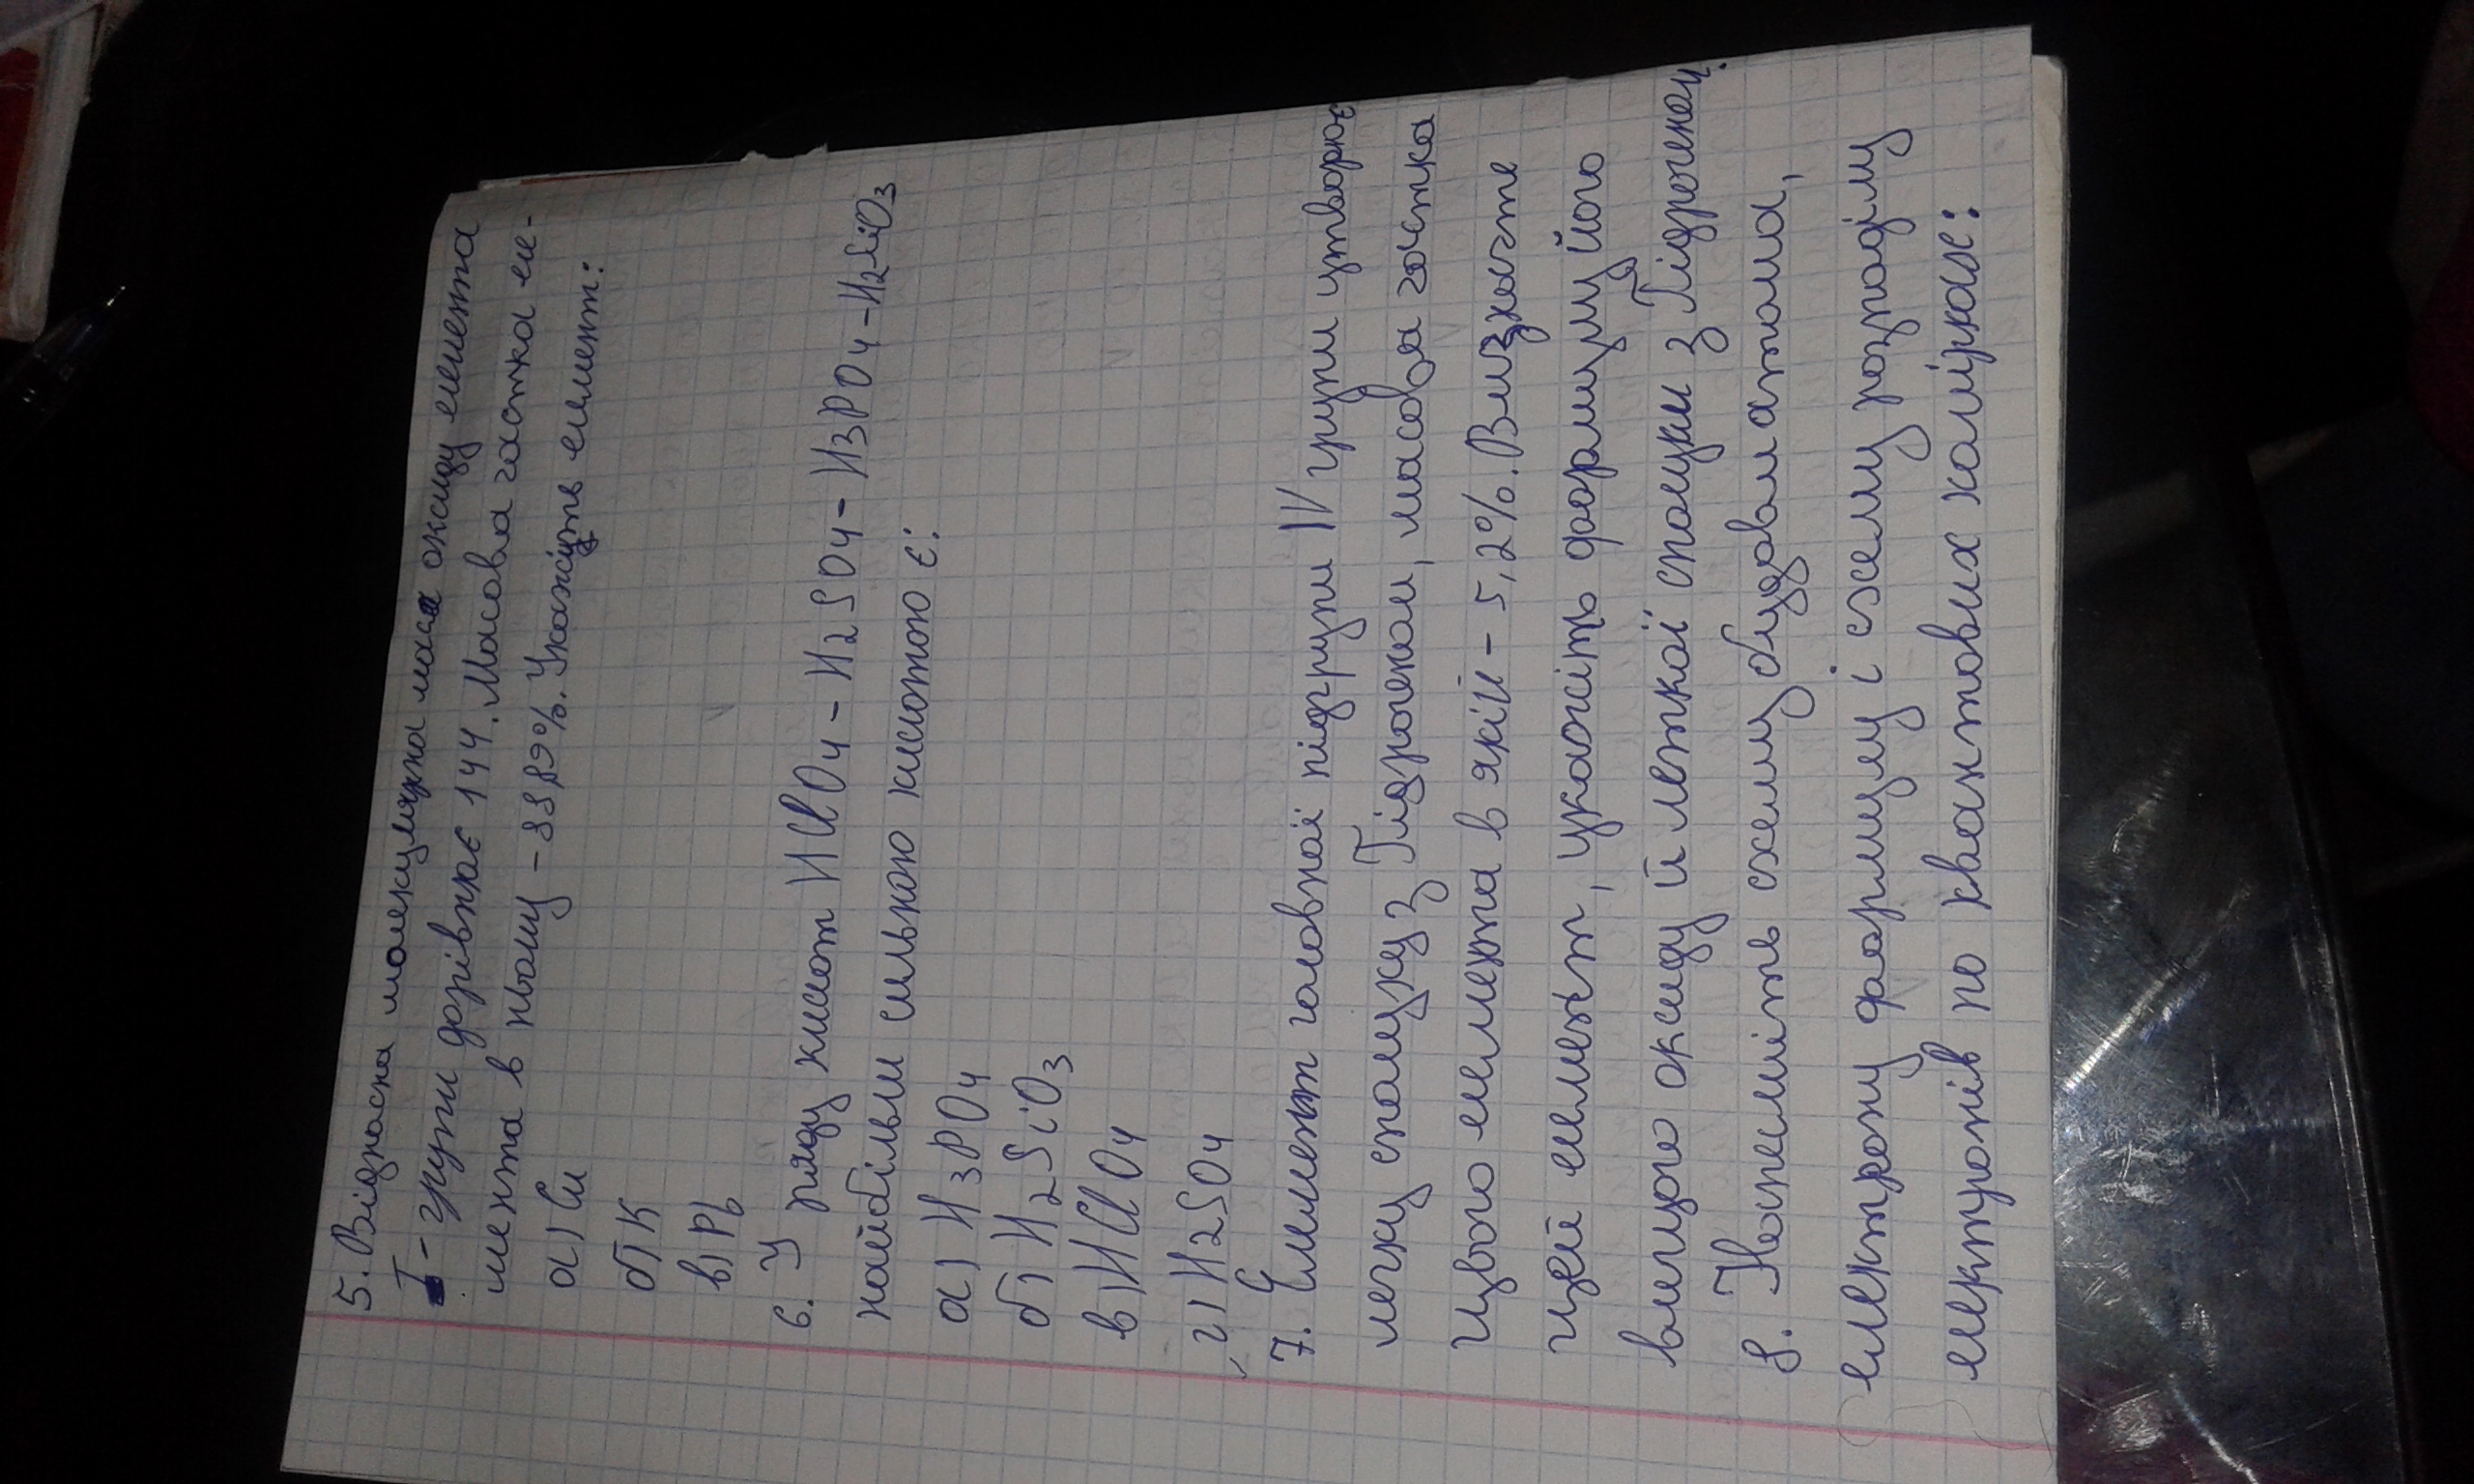 5. Відносна молекулярна маса оксиду елемента
I - групи дорівнює 144. Масова частка еле-
мента в ньому - 88,89%. Укажіть елемент:
а) Cu
б) K
в) Pb
6. У ряду кислот HClO4 - H2SO4 - H3PO4 - H2SiO3
найбільш сильною кислотою є:
а) H3PO4
б) H2SiO3
в) HClO4
г) H2SO4
7. Елемент головної підгрупи IV групи утворює
легку сполуку з Гідрогеном, масова частка
цього елемента в якій - 5,2%. Визначте
цей елемент, укажіть формулу його
вищого оксиду й леткої сполуки з Гідрогеном.
8. Накресліть схему будови атома,
електрону формулу і схему розподілу
електронів по квантових комірках: